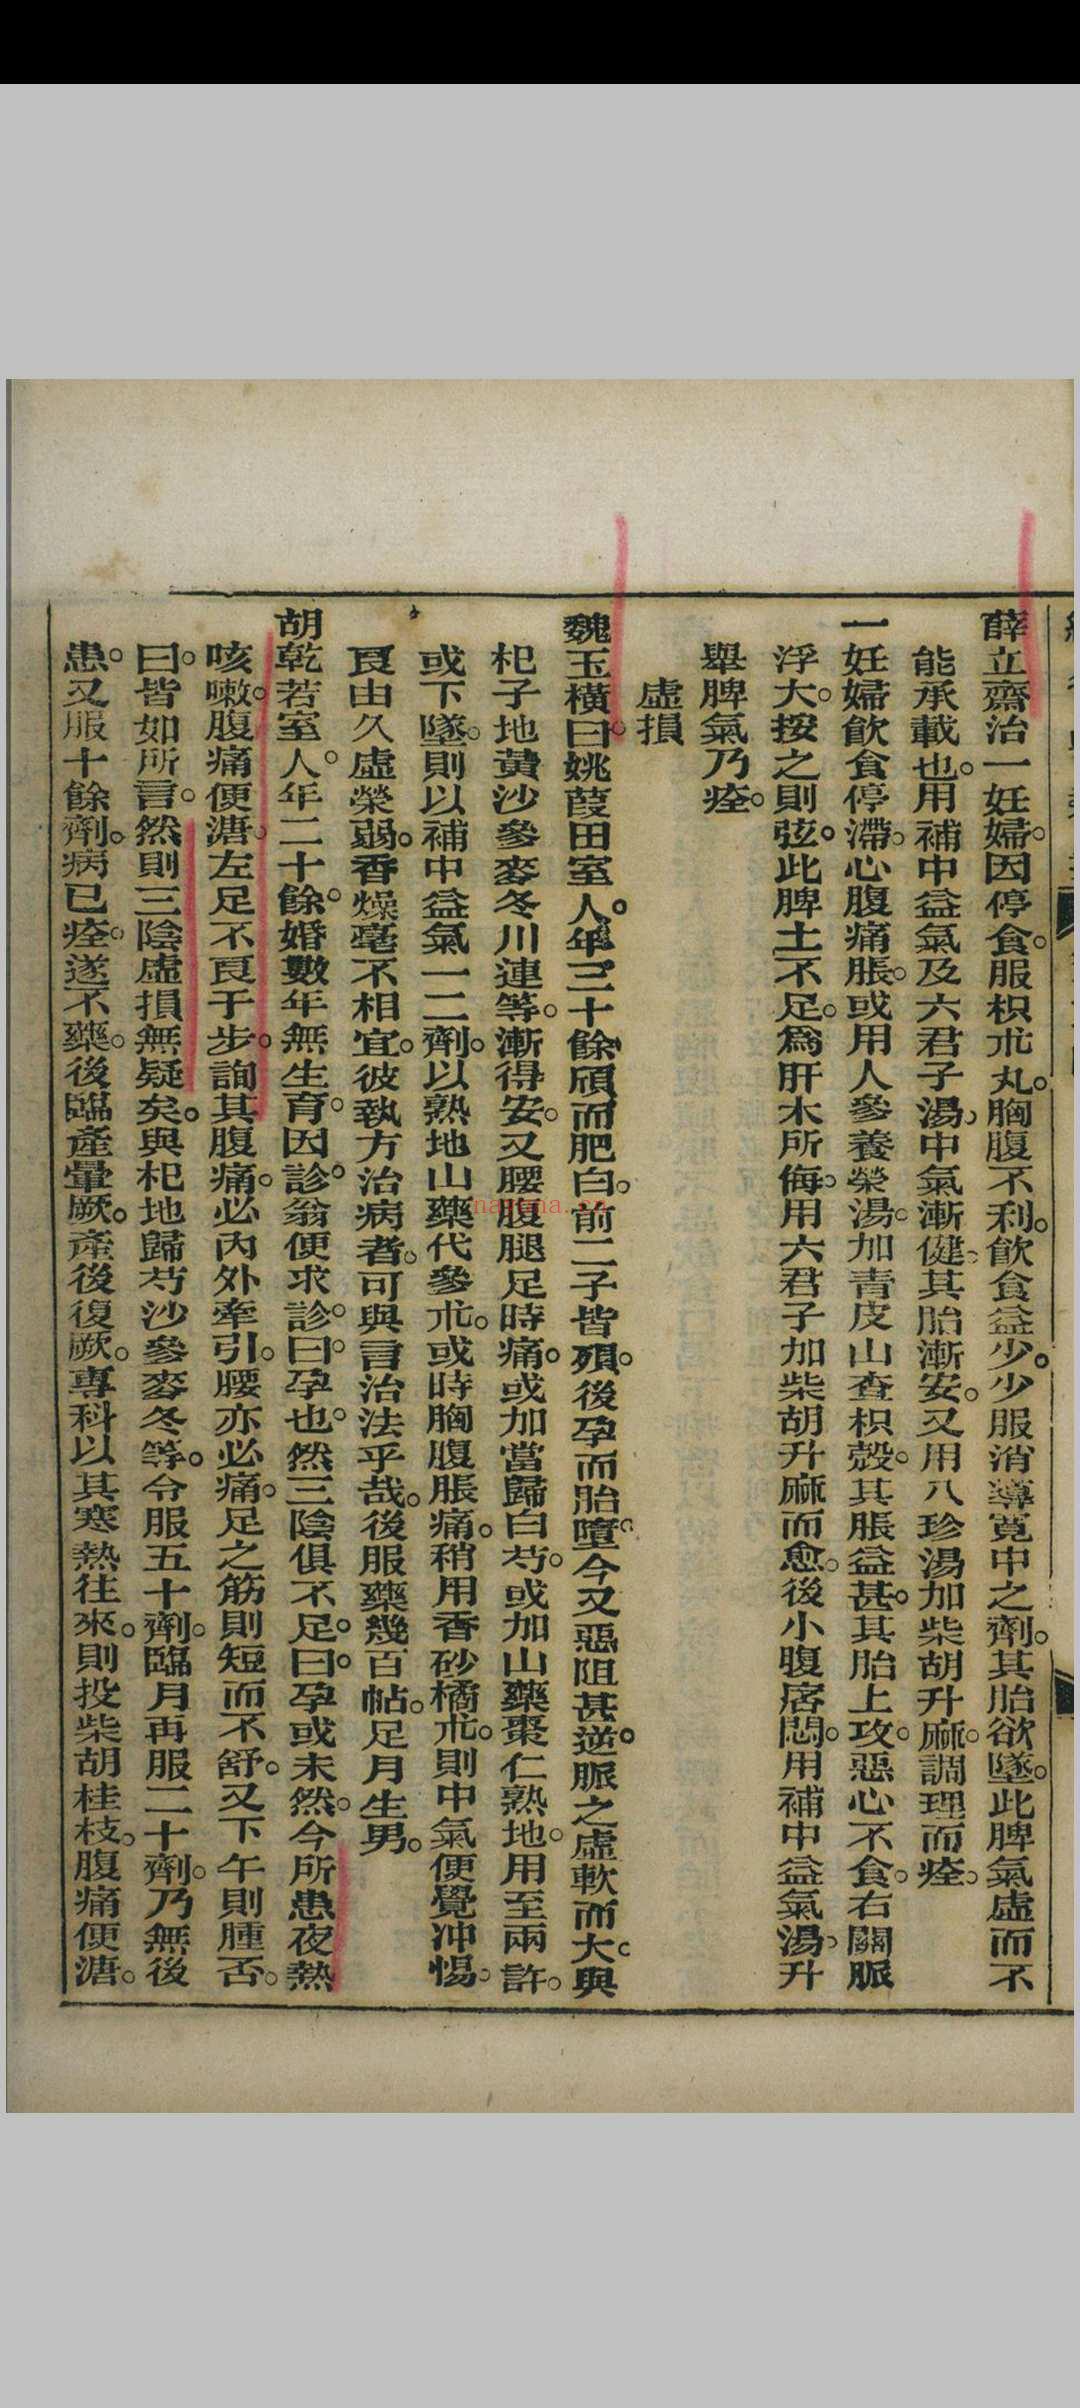 薛立齋治一妊婦。因停食。服枳朮丸。胸腹不利。飲食益少。少服消導寬中之劑。其胎欲墜。此脾氣虛而不
能承載也。用補中益氣及六君子湯。中氣漸健。其胎漸安。又用八珍湯加柴胡升麻。調理而痊。
一妊婦飲食停滯。心腹痛脹。或用人參養榮湯。加青皮山查枳殼。其脹益甚。其胎上攻。惡心不食。右關脈
浮大。按之則弦。此脾土不足。爲肝木所侮。用六君子加柴胡升麻而愈。後小腹痞悶。用補中益氣湯。升
舉脾氣乃痊。
虛損
魏玉橫曰。姚葭田室人。年三十餘。頎而肥白。前二子皆殞。後孕而胎墮。今又惡阻甚逆。脈之虛軟而大。與
杞子地黃沙參麥冬川連等。漸得安。又腰腹腿足時痛。或加當歸白芍。或加山藥棗仁熟地。用至兩許。
或下墜。則以補中益氣一二劑。以熟地山藥代參朮。或時胸腹脹痛。稍用香砂橘朮。則中氣便覺冲惕。
良由久虛榮弱。香燥毫不相宜。彼執方治病者。可與言治法乎哉。後服藥幾百帖。足月生男。
胡乾若室人。年二十餘。婚數年無生育。因診。翁便求診。曰。孕也。然三陰俱不足。曰。孕或未然。今所患夜熱
咳嗽。腹痛便溏。左足不良于步。詢其腹痛。必內外牽引。腰亦必痛。足之筋則短而不舒。又下午則腫否。
曰。皆如所言。然則三陰虛損無疑矣。與杞地歸芍沙參麥冬等。令服五十劑。臨月再服二十劑。乃無後
患。又服十餘劑。病已痊。遂不藥。後臨產暈厥。產後復厥。專科以其寒熱往來。則投柴胡桂枝。腹痛便溏。
nayona.cn